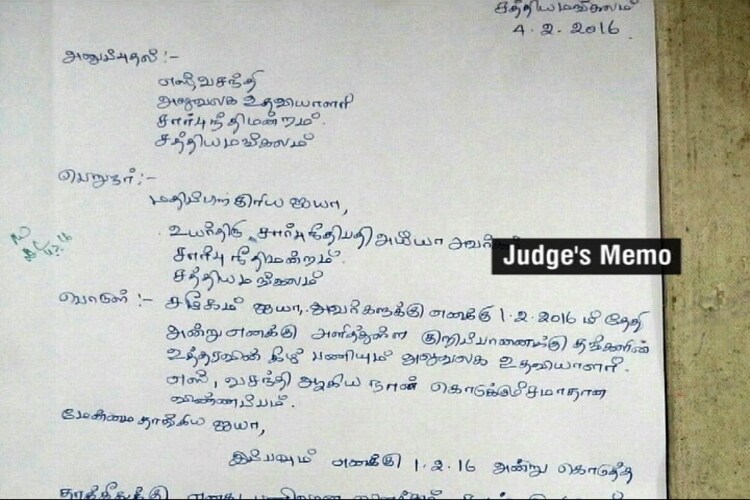 சத்தியமங்கலம்
4.2.2016
அனுப்புதல் :-
எஸ், வசந்தி
அலுவலக உதவியாளர்
சார்பு நீதிமன்றம்.
சத்தியமங்கலம்
பெறுநர் :-
மதிப்பிற்குரிய ஐயா,
உயர்திரு. சார்பு நீதிபதி அய்யா அவர்கள்
சார்பு நீதிமன்றம்.
சத்தியமங்கலம்
Judge's Memo
பொருள் :- சமூகம் ஐயா அவர்களுக்கு எனக்கு 1.2.2016 ம் தேதி
அன்று எனக்கு அளித்துள்ள குறிப்பாணைக்கு தங்களின்
உத்தரவின் கீழ் பணியும் அலுவலக உதவியாளர்
எஸ், வசந்தி ஆகிய நான் கொடுக்கும் சமாதான
விண்ணப்பம்.
மேன்மை தாங்கிய ஐயா,
இப்பவும் எனக்கு 1.2.16 அன்று கொடுத்த